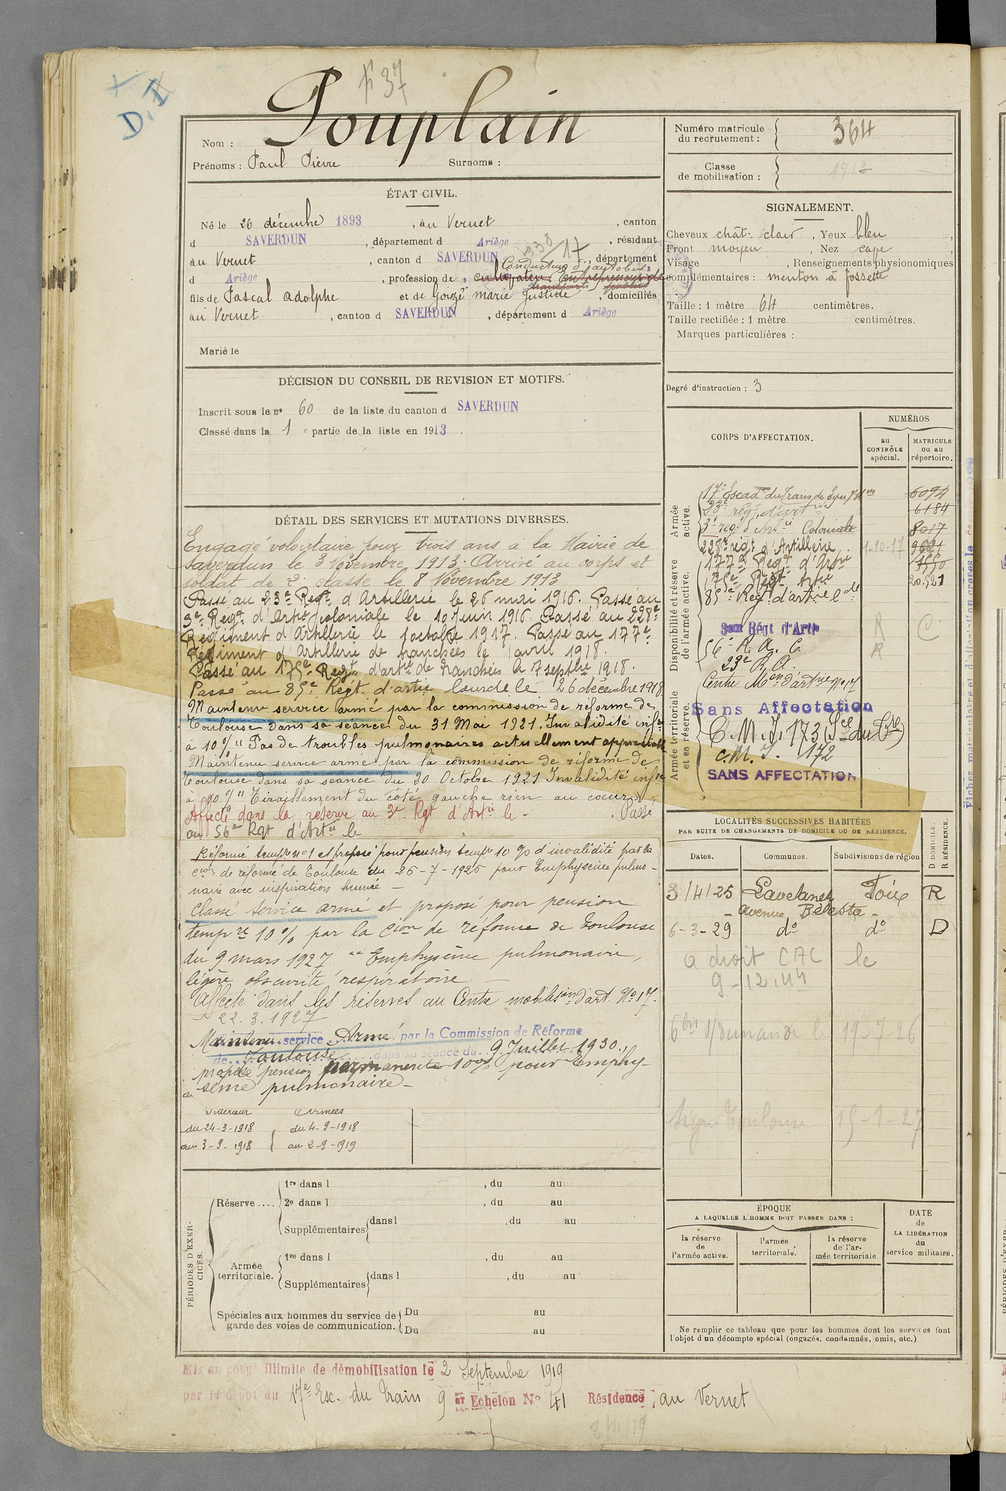 D.II
F 37
Nom : Pouplain
Prénoms : Paul Pierre Surnoms :
Numéro matricule du recrutement : 364
Classe de mobilisation : 1912
ÉTAT CIVIL.
Né le 26 décembre 1893, au Vernet, canton
d SAVERDUN, département d Ariège, résidant
au Vernet, canton d SAVERDUN, département
d Ariège, profession de cultivateur
Conducteur d'autobus
fils de Pascal Adolphe et de Gouzé Marie Justine, domiciliés
au Vernet, canton d SAVERDUN, département d Ariège
Marié le
SIGNALEMENT.
Cheveux chât: clair, Yeux bleu
Front moyen, Nez cave
Visage , Renseignements physionomiques
complémentaires : menton à fossette
Taille : 1 mètre 64 centimètres.
Taille rectifiée : 1 mètre centimètres.
Marques particulières :
Degré d'instruction : 3
DÉCISION DU CONSEIL DE REVISION ET MOTIFS.
Inscrit sous le n° 60 de la liste du canton d SAVERDUN
Classé dans la 1e partie de la liste en 1913.
DÉTAIL DES SERVICES ET MUTATIONS DIVERSES.
Engagé volontaire pour trois ans à la Mairie de
Saverdun le 3 Novembre 1913. Arrivé au corps et
soldat de 2e classe le 8 Novembre 1913
Passé au 23e Régt d'Artillerie le 26 mai 1916. Passé au
3e Régt d'Artie Coloniale le 10 juin 1916. Passé au 228e
Régiment d'Artillerie le 1 octobre 1917. Passé au 177e
Régiment d'Artillerie de tranchées le 1 avril 1918.
Passé au 175e Régt d'artie de tranchées le 7 septbre 1918.
Passé au 85e Régt d'artie lourde le 26 décembre 1918
Maintenu service armé par la commission de réforme de
Toulouse dans sa séance du 31 Mai 1921. Invalidité infre
à 10% Pas de troubles pulmonaires actuellement appréciables
Maintenu service armé par la commission de réforme de
Toulouse dans sa séance du 20 Octobre 1921 Invalidité infre
à 10% Tiraillement du côté gauche rien au coeur
Affecté dans la réserve au 3e Rgt d'Artie le - . Passé
au 56e Rgt d'Artie le
Réformé tempre n°1 et proposé pour pension tempre 10 % d'invalidité par la
Cion de réforme de Toulouse du 26-7-1926 pour Emphysème pulmo-
naire avec inspiration humée -
Classé service armé et proposé pour pension
tempre 10 % par la Cion de réforme de Toulouse
du 9 mars 1927 "Emphysème pulmonaire,
légère obscurité respiratoire
Affecté dans les réserves au Centre mobilison d'art. N° 17.
22.3.1927
Maintenu service Armé par la Commission de Réforme
de Toulouse dans sa séance du 9 Juillet 1930.
propose pension permanente 10% pour Emphy-
sème pulmonaire -
Intérieur Armées
du 24-3-1918 du 4-9-1918
au 3-9-1918 au 2-9-1919
CORPS D'AFFECTATION.
NUMÉROS
au CONTRÔLE spécial.
MATRICULE ou au répertoire.
Armée active.
17e Escadon du Train des Équip. Mres 6094
23e régt d'artie 6184
3e régt d'Artie Coloniale 8017
228e régt d'Artillerie 1-10-17
177e Régt d'Artie
175e Régt Artie
85e Régt d'artie lde
Disponibilité et réserve de l'armée active.
3eme Régt d'Artie
56e R. A. C.
23e R. A.
Centre Mon d'artie N° 17
Armée territoriale et sa réserve.
Sans Affectation
C. M. I. 173
C. M. I. 172
SANS AFFECTATION
LOCALITÉS SUCCESSIVES HABITÉES
PAR SUITE DE CHANGEMENTS DE DOMICILE OU DE RÉSIDENCE.
Dates. Communes. Subdivisions de région D DOMICILE. R RÉSIDENCE.
3/4/25 Lavelanet Foix R
avenue Bélesta -
6-3-29 d° d° D
a droit CAC le
9-12-44
PÉRIODES D'EXERCICES.
Réserve.... 1re dans l , du au
2e dans l , du au
Supplémentaires dans l , du au
Armée territoriale. 1re dans l , du au
Supplémentaires dans l , du au
Spéciales aux hommes du service de garde des voies de communication. Du au
Du au
ÉPOQUE
A LAQUELLE L'HOMME DOIT PASSER DANS :
la réserve de l'armée active.
l'armée territoriale.
la réserve de l'armée territoriale
DATE de LA LIBÉRATION du service militaire.
Ne remplir ce tableau que pour les hommes dont les services font
l'objet d'un décompte spécial (engagés, condamnés, omis, etc.)
Mis en congé illimité de démobilisation le 2 Septembre 1919
par le dépôt du 17e Esc. du Train 9 er Echelon N° 41 Résidence au Vernet